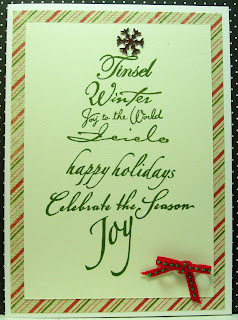 Tinsel
Winter
Joy to the World
Icicle
happy holidays
Celebrate the Season
Joy